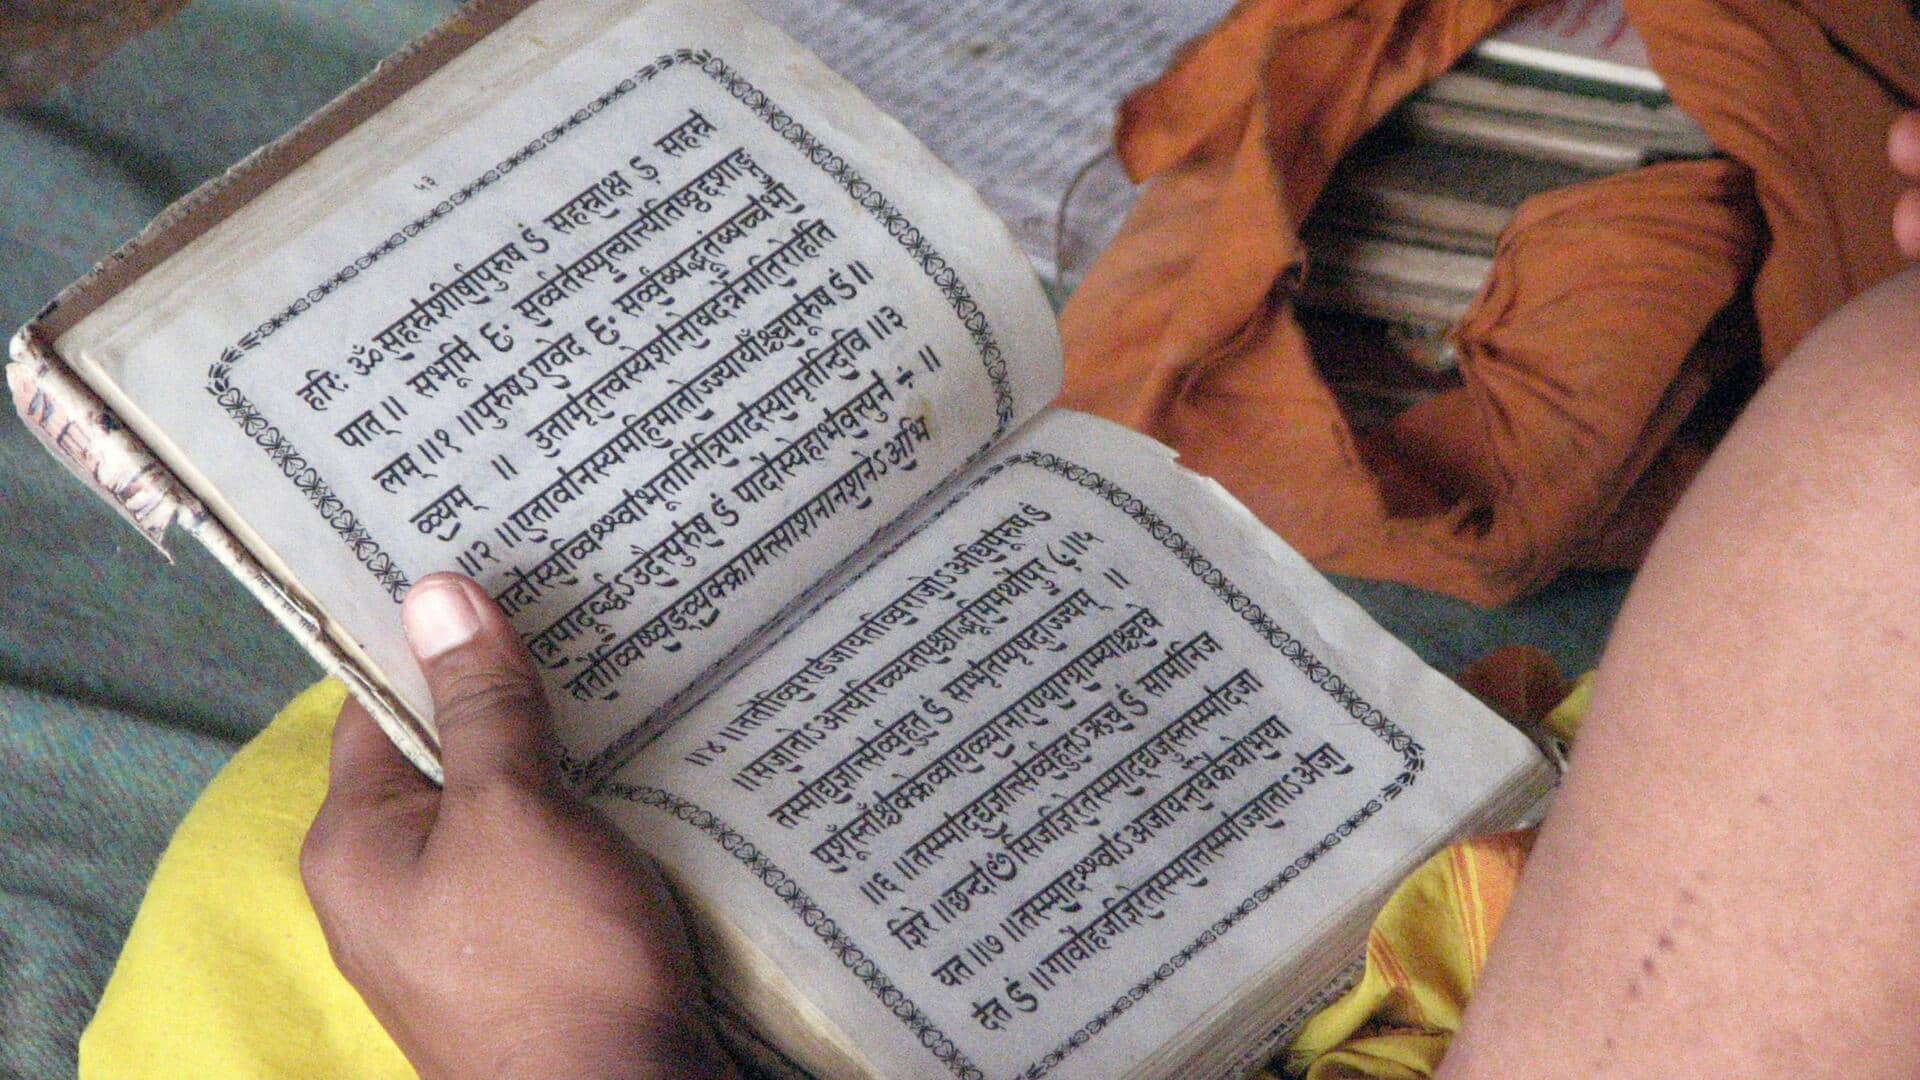 ५३
हरिः ॐ सहस्रशीर्षापुरुष ꣳ सहस्राक्ष ꣳ सहस्र
पात् ॥ सभूमि ꣳ सर्व्वतस्पृत्वात्यतिष्ठद्दशाङ्गु
लम् ॥ १ ॥ पुरुषऽएवेद ꣳ सर्व्वंय्यद्भूतंय्यच्चभा
व्यम् ॥ उतामृतत्त्वस्येशानोयदन्नेनातिरोहति
॥ २ ॥ एतावानस्यमहिमातोज्ज्यायाँश्चपूरुष ꣳ ॥
पादोस्यव्विश्श्वाभूतानित्रिपादस्यामृतन्दिवि ॥ ३
त्रिपादूर्द्ध्वऽउदैत्पुरुष ꣳ पादोस्येहाभवत्पुनः ॥
ततोव्विष्ष्वङ्व्यक्क्रामत्साशनानशनेऽअभि
॥ ४ ॥ ततोव्विराडजायतव्विराजोऽअधिपूरुष ꣳ
॥ सजातोऽअत्यरिच्च्यतपश्चाद्भूमिमथोपुरः ॥ ५
तस्म्माद्यज्ञात्सर्व्वहुत ꣳ सम्भृतम्पृषदाज्ज्यम् ॥
पशूँस्ताँश्चक्क्रेव्वायव्व्यानारण्याग्ग्राम्याश्श्चये
॥ ६ ॥ तस्म्माद्यज्ञात्सर्व्वहुतऽऋच ꣳ सामानिज
ज्ञिरे ॥ छन्दाꣳसिजज्ञिरेतस्म्माद्यजुस्तस्म्मादजा
यत ॥ ७ ॥ तस्म्मादश्श्वाऽअजायन्तयेकेचोभया
दत ꣳ ॥ गावोहजज्ञिरेतस्म्मात्तस्म्माज्जाताऽअजा